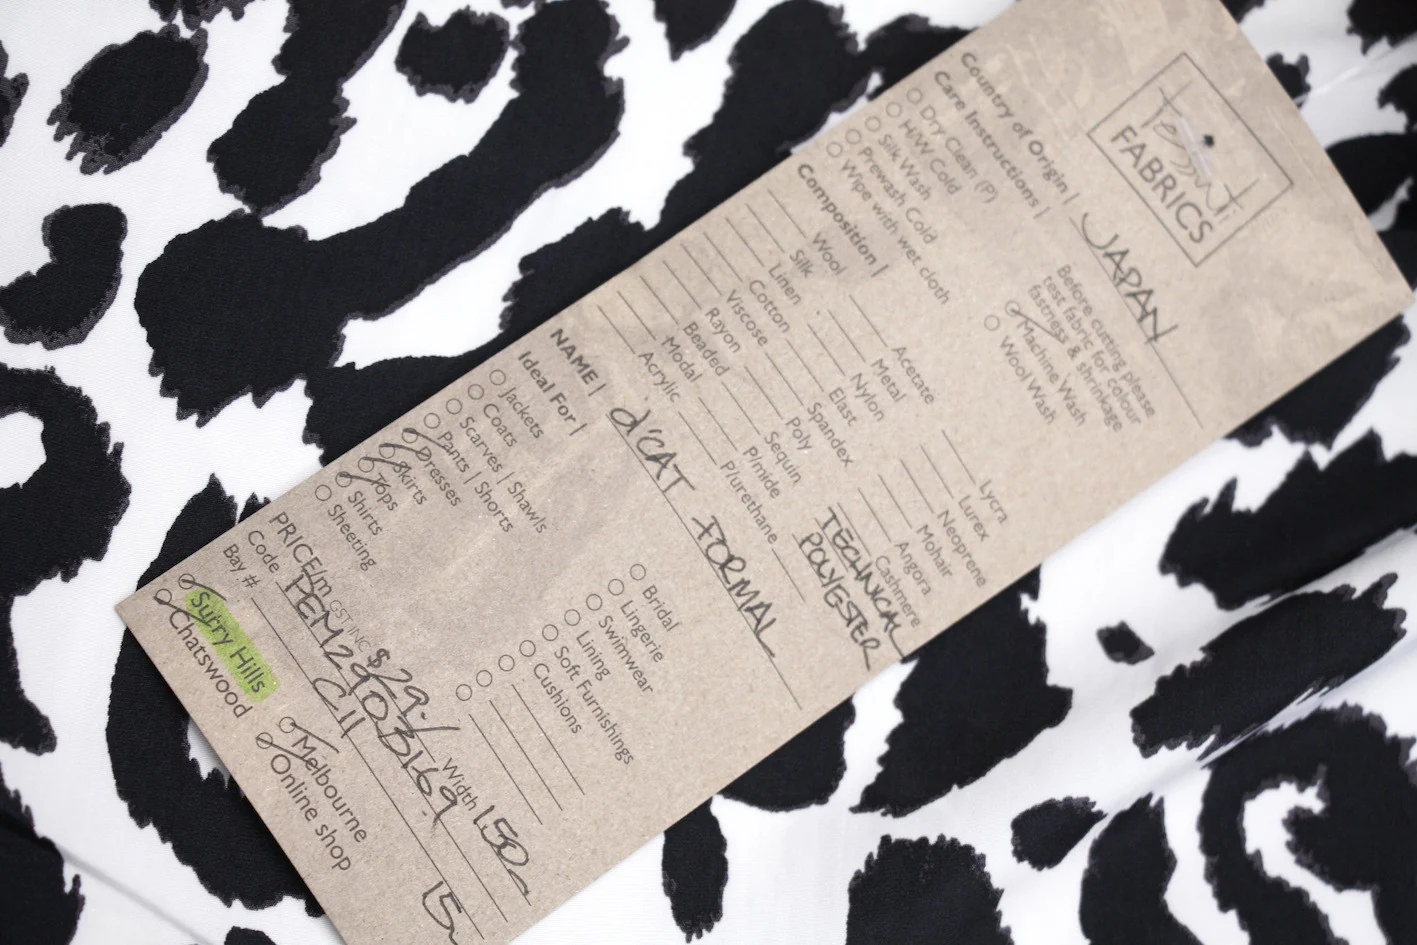 Tessuti
FABRICS
Country of Origin | JAPAN
Care Instructions |
Dry Clean (P)
H/W Cold
Silk Wash
Prewash Cold
Wipe with wet cloth
Before cutting please
test fabric for colour
fastness & shrinkage
Machine Wash
Wool Wash
Composition |
Wool
Silk
Linen
Cotton
Viscose
Rayon
Beaded
Modal
Acrylic
Acetate
Metal
Nylon
Elast
Spandex
Poly
Sequin
P/mide
P/urethane
Lycra
Lurex
Neoprene
Mohair
Angora
Cashmere
TECHNICAL
POLYESTER
NAME | d'CAT FORMAL
Ideal For |
Jackets
Coats
Scarves | Shawls
Pants | Shorts
Dresses
Skirts
Tops
Shirts
Sheeting
Bridal
Lingerie
Swimwear
Lining
Soft Furnishings
Cushions
PRICE/m GST INC $29./ Width 150
Code PEM2970B169
Bay # C11 15
Surry Hills
Chatswood
Melbourne
Online shop